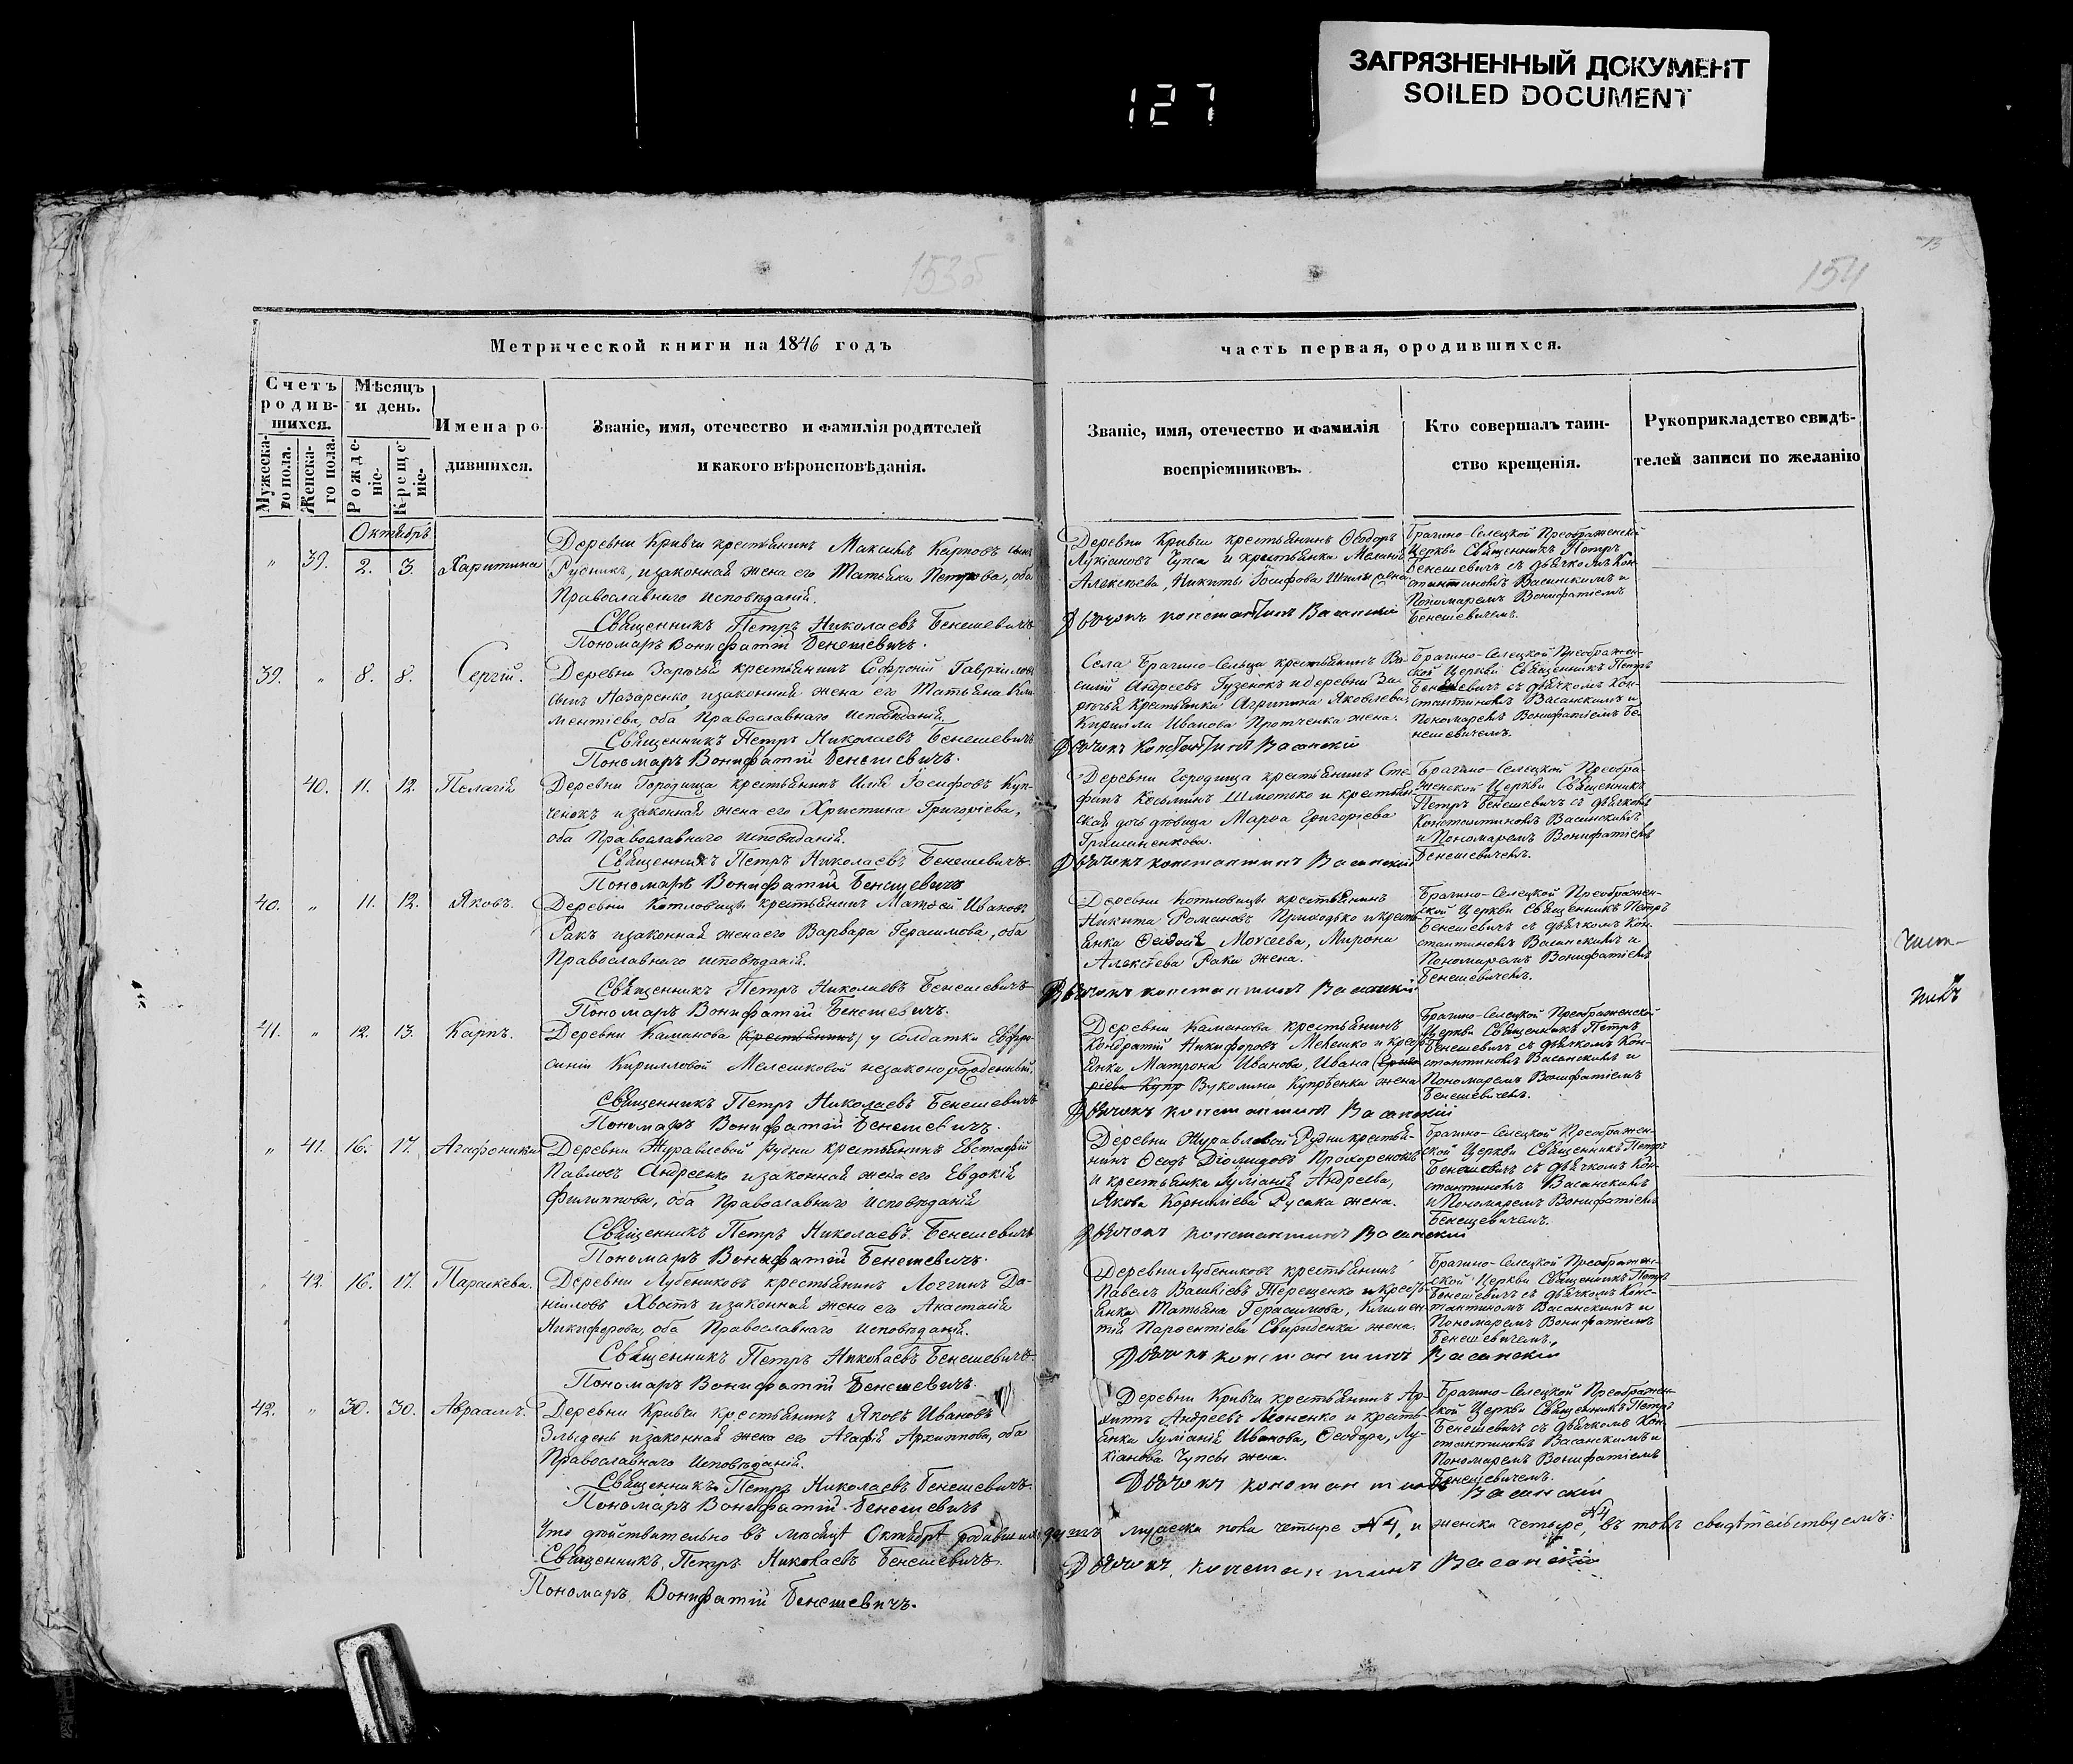 127
ЗАГРЯЗНЕННЫЙ ДОКУМЕНТ
SOILED DOCUMENT
153об
154
Метрической книги на 1846 годъ
часть первая, о родившихся.
Счетъ родив-
шихся.
Мѣсяцъ
и день.
Мужеска-
го пола.
Женска-
го пола.
Рожде-
ніе.
Креще-
ніе.
Имена ро-
дившихся.
Званіе, имя, отечество и фамилія родителей
и какого вѣроисповѣданія.
Званіе, имя, отечество и фамилія
воспріемниковъ.
Кто совершалъ таин-
ство крещенія.
Рукоприкладство свидѣ-
телей записи по желанію
Октябрь
„ 39. 2. 3. Харитина
Деревни Кривчи крестьянинъ Максимъ Карповъ сынъ
Рудникъ, и законная жена его Татьяна Петрова, оба
Православнаго исповѣданія.
Священникъ Петръ Николаевъ Бенешевичъ
Пономаръ Вонифатій Бенешевичъ.
Деревни Кривчи крестьянинъ Ѳеодоръ
Лукіановъ Чупса и крестьянка
Алексѣева, Никиты Іосифова жена
Дьячокъ Константинъ Васанскій
Брагино-Селецкой Преображенской
Церкви Священникъ Петръ
Бенешевичъ съ дьячкомъ Кон-
стантиномъ Васанскимъ и
Пономаремъ Вонифатіемъ
Бенешевичемъ.
39. „ 8. 8. Сергій.
Деревни Заречья крестьянинъ Софроній Гавріиловъ
сынъ Назаренко, и законная жена его Татьяна Кли-
ментіева, оба Православнаго исповѣданія.
Священникъ Петръ Николаевъ Бенешевичъ
Пономаръ Вонифатій Бенешевичъ.
Села Брагино-Сельца крестьянинъ Ва-
силій Андреевъ Гузенокъ и деревни За-
речья крестьянка Агрипина Яковлева,
Кирилла Иванова Протченка жена.
Дьячокъ Константинъ Васанскій
Брагино-Селецкой Преображен-
ской Церкви Священникъ Петръ
Бенешевичъ съ дьячкомъ Кон-
стантиномъ Васанскимъ и
Пономаремъ Вонифатіемъ Бе-
нешевичемъ.
40. 11. 12. Пелагія
Деревни Городища крестьянинъ Илія Іосифовъ Куп-
ченокъ и законная жена его Христина Григоріева,
оба Православнаго исповѣданія.
Священникъ Петръ Николаевъ Бенешевичъ.
Пономаръ Вонифатій Бенешевичъ
Деревни Городища крестьянинъ Сте-
фанъ Косьминъ Шмотько и крестьян-
ская дочь дѣвица Марѳа Григоріева
Гришаненкова.
Дьячокъ Константинъ Васанскій
Брагино-Селецкой Преобра-
женской Церкви Священникъ
Петръ Бенешевичъ съ дьячкомъ
Константиномъ Васанскимъ
и Пономаремъ Вонифатіемъ
Бенешевичемъ.
40. „ 11. 12. Яковъ.
Деревни Котловицы крестьянинъ Матѳей Ивановъ
Ракъ и законная жена его Варвара Герасимова, оба
Православнаго исповѣданія.
Священникъ Петръ Николаевъ Бенешевичъ
Пономаръ Вонифатій Бенешевичъ.
Деревни Котловицы крестьянинъ
Никита Романовъ Приходько и кресть-
янка Ѳеодосія Моѵсеева, Мирона
Алексѣева Рака жена.
Дьячокъ Константинъ Васанскій
Брагино-Селецкой Преображен-
ской Церкви Священникъ Петръ
Бенешевичъ съ дьячкомъ Кон-
стантиномъ Васанскимъ и
Пономаремъ Вонифатіемъ
Бенешевичемъ.
41. „ 12. 13. Карпъ.
Деревни Каманова (крестьянинъ) у солдатки Евфро-
синіи Кирилловой Мелешковой незаконорожденный.
Священникъ Петръ Николаевъ Бенешевичъ
Пономаръ Вонифатій Бенешевичъ.
Деревни Каманова крестьянинъ
Кондратій Никифоровъ Мелешко и кресть-
янка Матрона Иванова, Ивана (Григо-
ріева Купр Вуколина Купрѣенка жена
Дьячокъ Константинъ Васанскій
Брагино-Селецкой Преображенской
Церкви Священникъ Петръ
Бенешевичъ съ дьячкомъ Кон-
стантиномъ Васанскимъ и
Пономаремъ Вонифатіемъ
Бенешевичемъ.
„ 41. 16. 17. Агафоникія
Деревни Журавлевой Рудни крестьянинъ Евстафій
Павловъ Андреенко и законная жена его Евдокія
Филиппова, оба Православнаго исповѣданія
Священникъ Петръ Николаевъ Бенешевичъ
Пономаръ Вонифатій Бенешевичъ.
Деревни Журавлевой Рудни крестья-
нинъ Ѳеодъ Діомидовъ Прохоренокъ
и крестьянка Іуліанія Андреева,
Якова Корниліева Русака жена.
Дьячокъ Константинъ Васанскій
Брагино-Селецкой Преображен-
ской Церкви Священникъ Петръ
Бенешевичъ съ дьячкомъ Кон-
стантиномъ Васанскимъ
и Пономаремъ Вонифатіемъ
Бенешевичемъ.
42. 16. 17. Параскева.
Деревни Лубениковъ крестьянинъ Логгинъ Да-
ніиловъ Хвостъ и законная жена его Анастасія
Никифорова, оба Православнаго исповѣданія.
Священникъ Петръ Николаевъ Бенешевичъ.
Пономаръ Вонифатій Бенешевичъ.
Деревни Лубениковъ крестьянинъ
Павелъ Терещенко и кресть-
янка Татьяна Герасимова, Климен-
тія Пароентіева Свириденка жена.
Дьячокъ Константинъ Васанскій
Брагино-Селецкой Преображен-
ской Церкви Священникъ Петръ
Бенешевичъ съ дьячкомъ Конс-
тантиномъ Васанскимъ и
Пономаремъ Вонифатіемъ
Бенешевичемъ.
42. „ 30. 30. Авраамъ.
Деревни Кривчи крестьянинъ Яковъ Ивановъ
Злыдень и законная жена его Агафія Архиппова, оба
Православнаго Исповѣданія.
Священникъ Петръ Николаевъ Бенешевичъ.
Пономаръ Вонифатій Бенешевичъ
Деревни Кривчи крестьянинъ Ар-
хипъ Андреевъ Моненко и кресть-
янка Іуліанія Иванова, Ѳеодора, Лу-
кіанова Чупсы жена.
Дьячокъ Константинъ Васанскій
Брагино-Селецкой Преображен-
ской Церкви Священникъ Петръ
Бенешевичъ съ дьячкомъ Кон-
стантиномъ Васанскимъ и
Пономаремъ Вонифатіемъ
Бенешевичемъ.
Что дѣйствительно въ мѣсяцѣ Октябрѣ родившихся душъ мужеска пола четыре №4, и женска четыре №4, въ томъ свидѣтельствуемъ:
Священникъ Петръ Николаевъ Бенешевичъ.
Дьячокъ Константинъ Васанскій
Пономаръ Вонифатій Бенешевичъ.